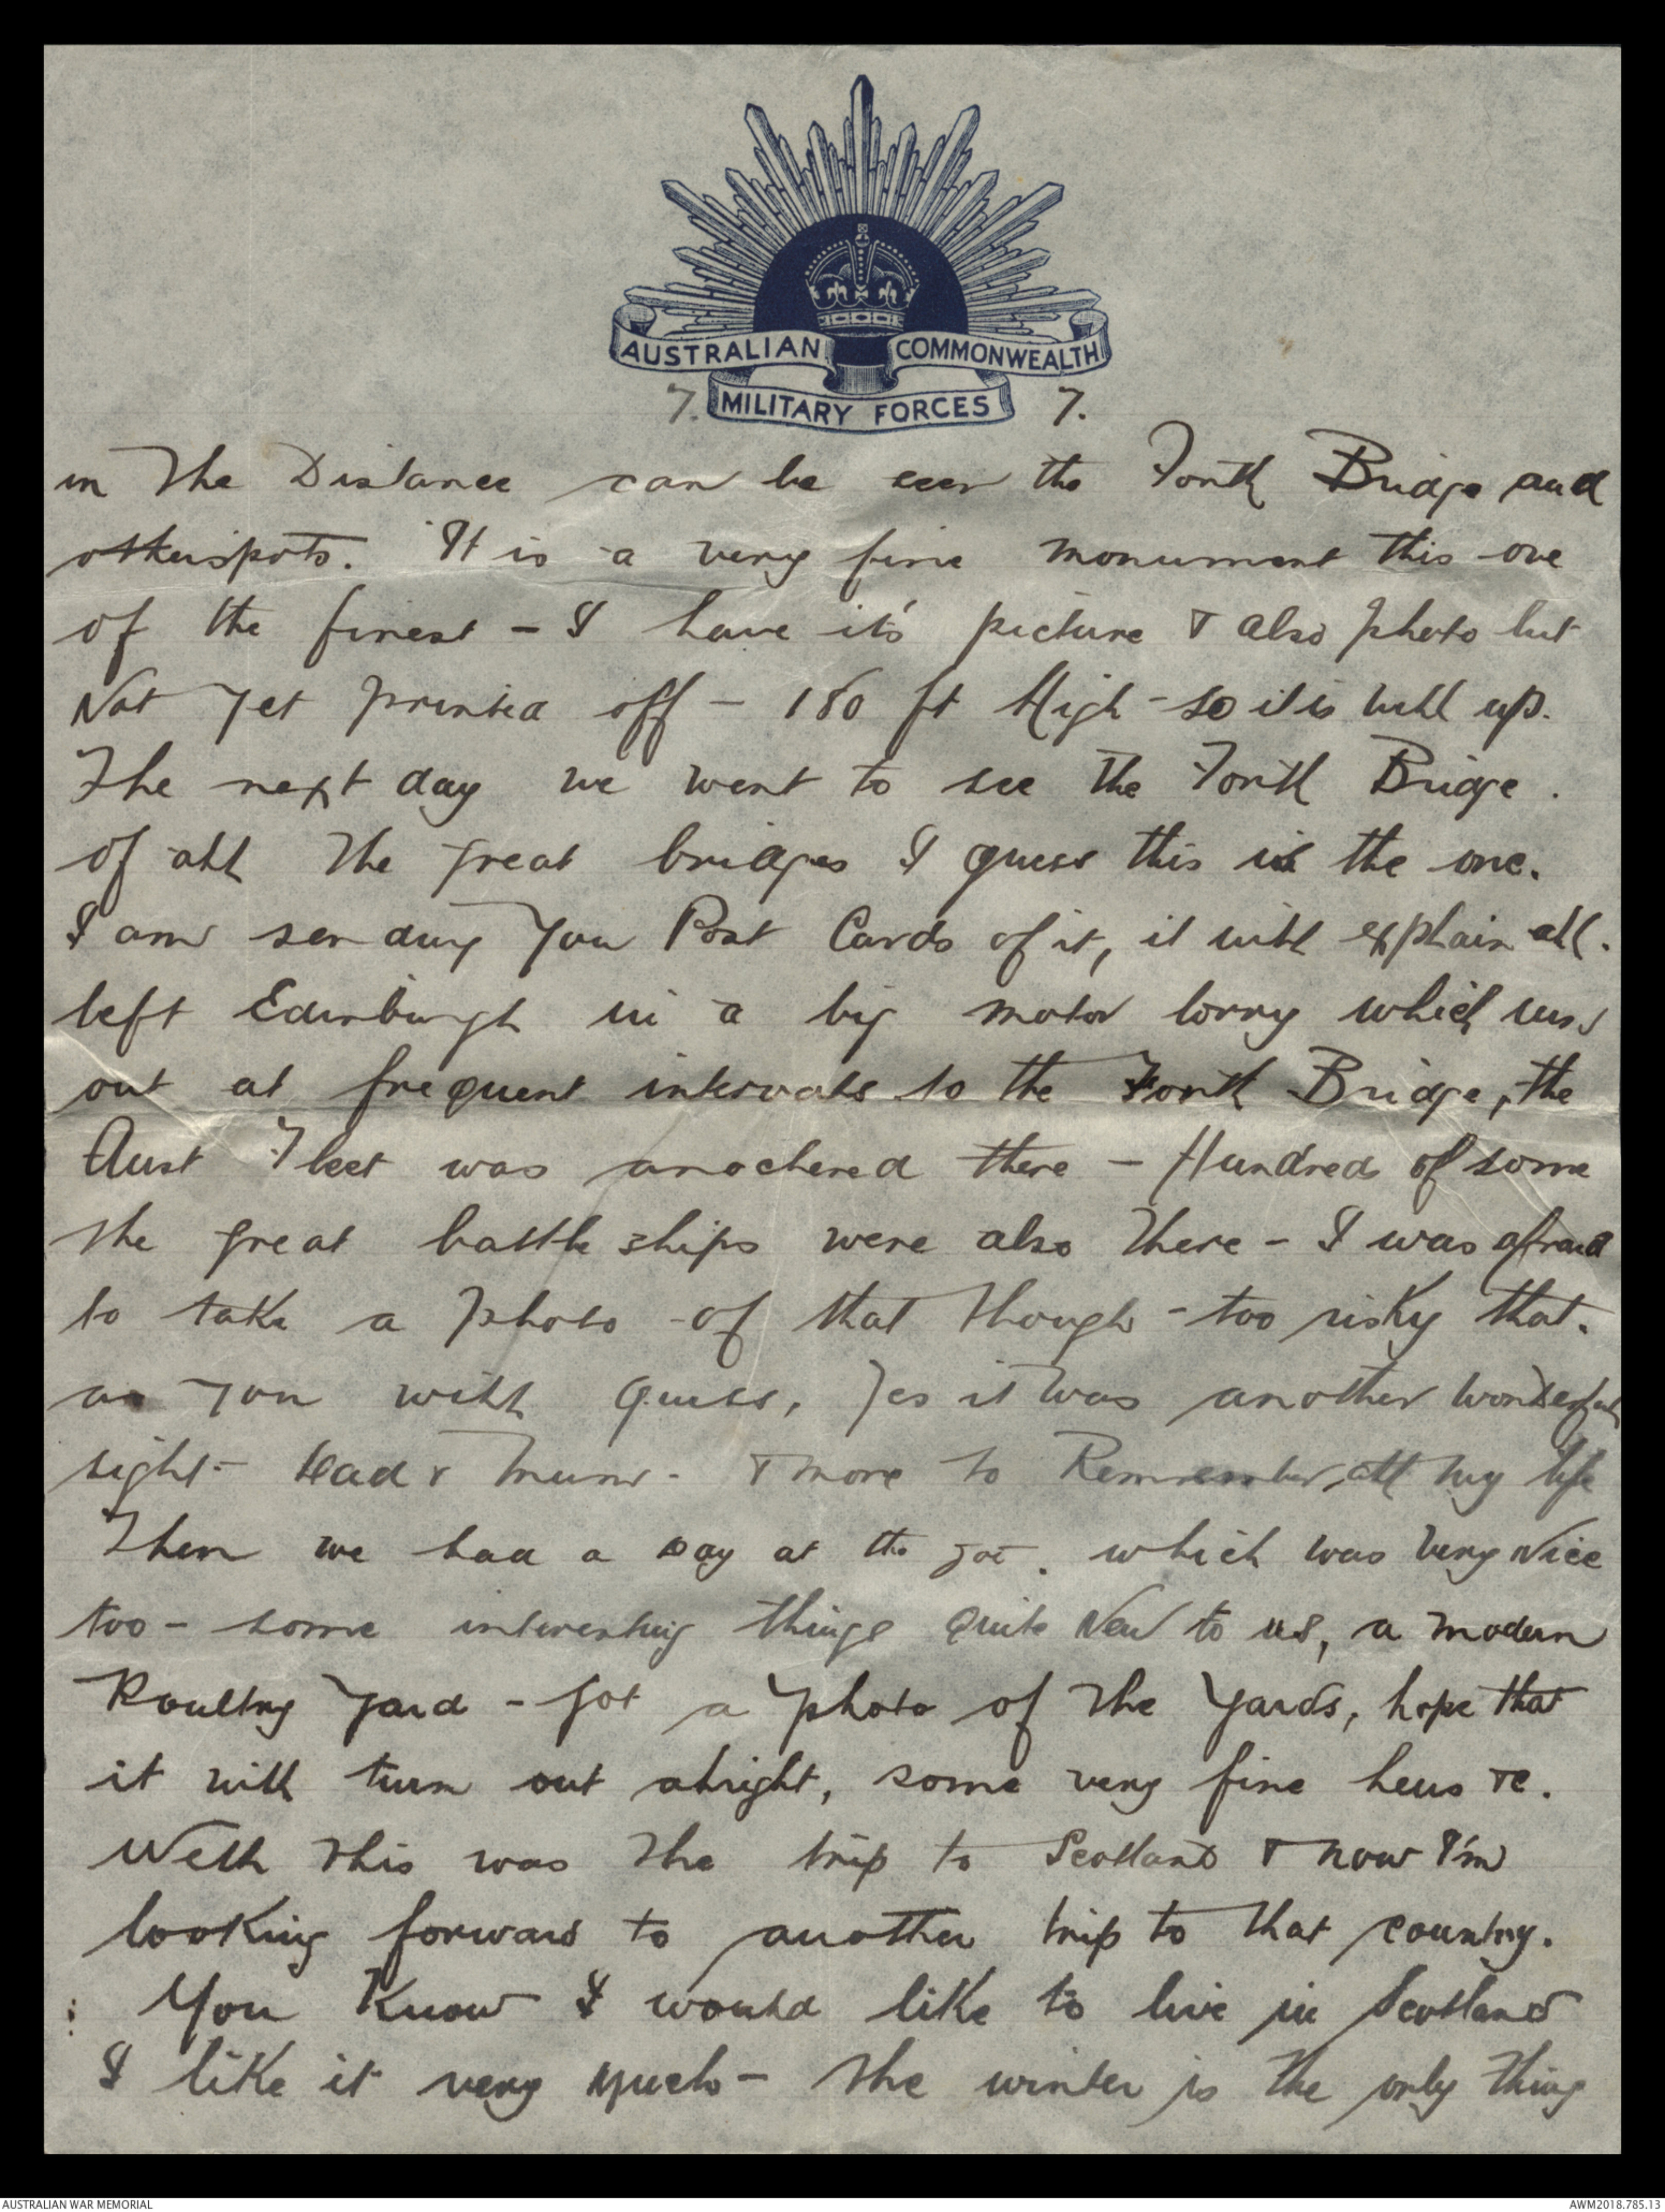 AUSTRALIAN COMMONWEALTH
7. MILITARY FORCES 7.
in the Distance can be seen the Forth Bridge and
otherspots. It is a very fine monument this one
of the finest - I have it's picture & also photo but
Not yet printed off - 180 ft High - so it is well up.
The next day we went to see the Forth Bridge.
of all the great bridges I guess this is the one.
I am sending you Post Cards of it, it will explain all.
left Edinburgh in a big motor lorry which runs
out at frequent intervals to the Forth Bridge, the
Aust Fleet was anochered there - Hundreds of some
the great battle ships were also there - I was afraid
to take a photo of that though - too risky that.
as you will guess, Yes it was another wonderful
sight - Dad & Mum - & more to Remember all my life
Then we had a Day at the zoo. which was very Nice
too - some interesting things quite New to us, a modern
Poultry Yard - got a photo of the Yards, hope that
it will turn out alright, some very fine hens &c.
Well this was the trip to Scotland & now I'm
looking forward to another trip to that country.
You know I would like to live in Scotland
I like it very much - the winter is the only thing
AUSTRALIAN WAR MEMORIAL AWM2018.785.13